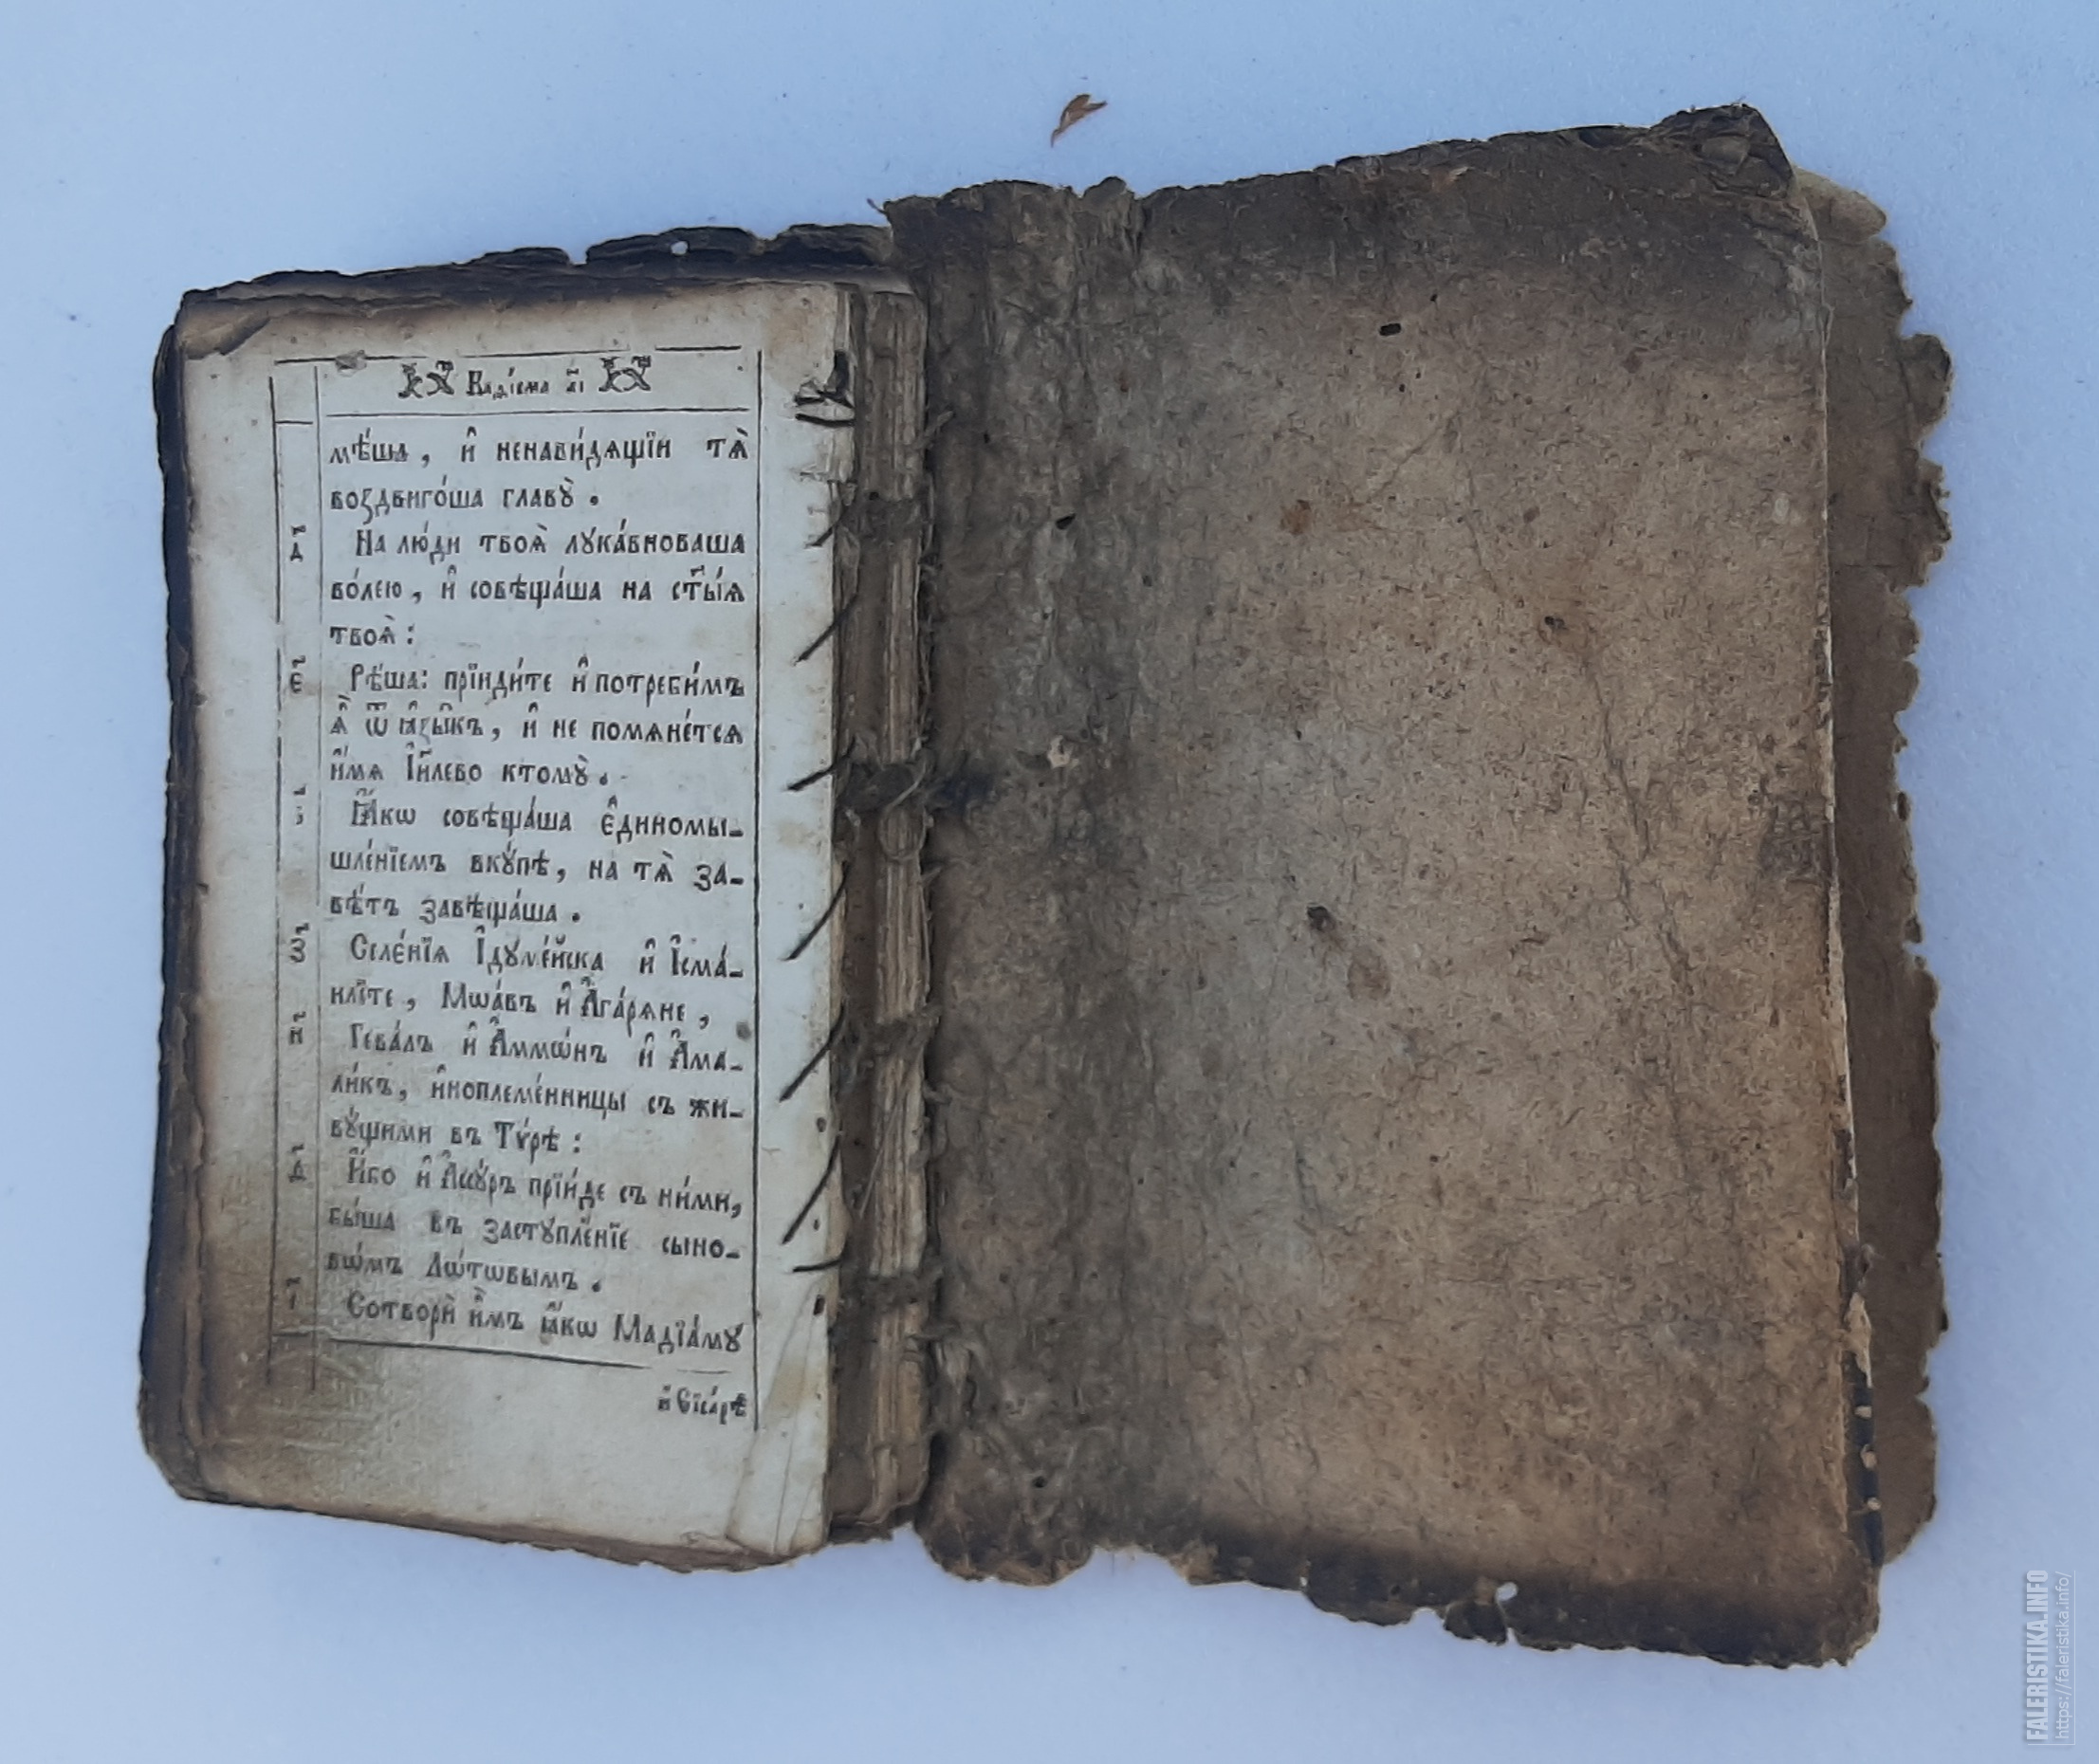 Каѳі́сма а҃і
мѣ́ша, и҆ ненави́дѧщїи тѧ̀
воздвиго́ша главꙋ̀.
д҃ На лю́ди твоѧ̀ лꙋка́вноваша
во́лею, и҆ совѣща́ша на ст҃ы́ѧ
твоѧ̀:
є҃ Рѣ́ша: прїиди́те и҆ потреби́мъ
ѧ҆̀ ѿ ꙗ҆зы̑къ, и҆ не помѧне́тсѧ
и҆́мѧ І҆и҃лево ктомꙋ̀.
Ꙗ҆́кѡ совѣща́ша є҆диномы-
шле́нїемъ вкꙋ́пѣ, на тѧ̀ за-
вѣ́тъ завѣща́ша.
з҃ Селе́нїѧ І҆дꙋме́йска и҆ І҆сма-
и́лїте, Мѡа́въ и҆ А҆га́рѧне,
и҃ Гева́лъ и҆ А҆ммѡ́нъ и҆ А҆ма-
ли́къ, и҆ноплеме́нницы съ жи-
вꙋ́щими въ Тѵ́рѣ:
ѳ҃ И҆́бо и҆ А҆ссꙋ́ръ прїи́де съ ни́ми,
бы́ша въ застꙋпле́нїе сыно-
вѡ́мъ Лѡ́тѡвымъ.
і҃ Сотворѝ и҆̀мъ ꙗ҆́кѡ Мадїа́мꙋ
и҆ Сїса́рѣ
FALERISTIKA.INFO
https://faleristika.info/